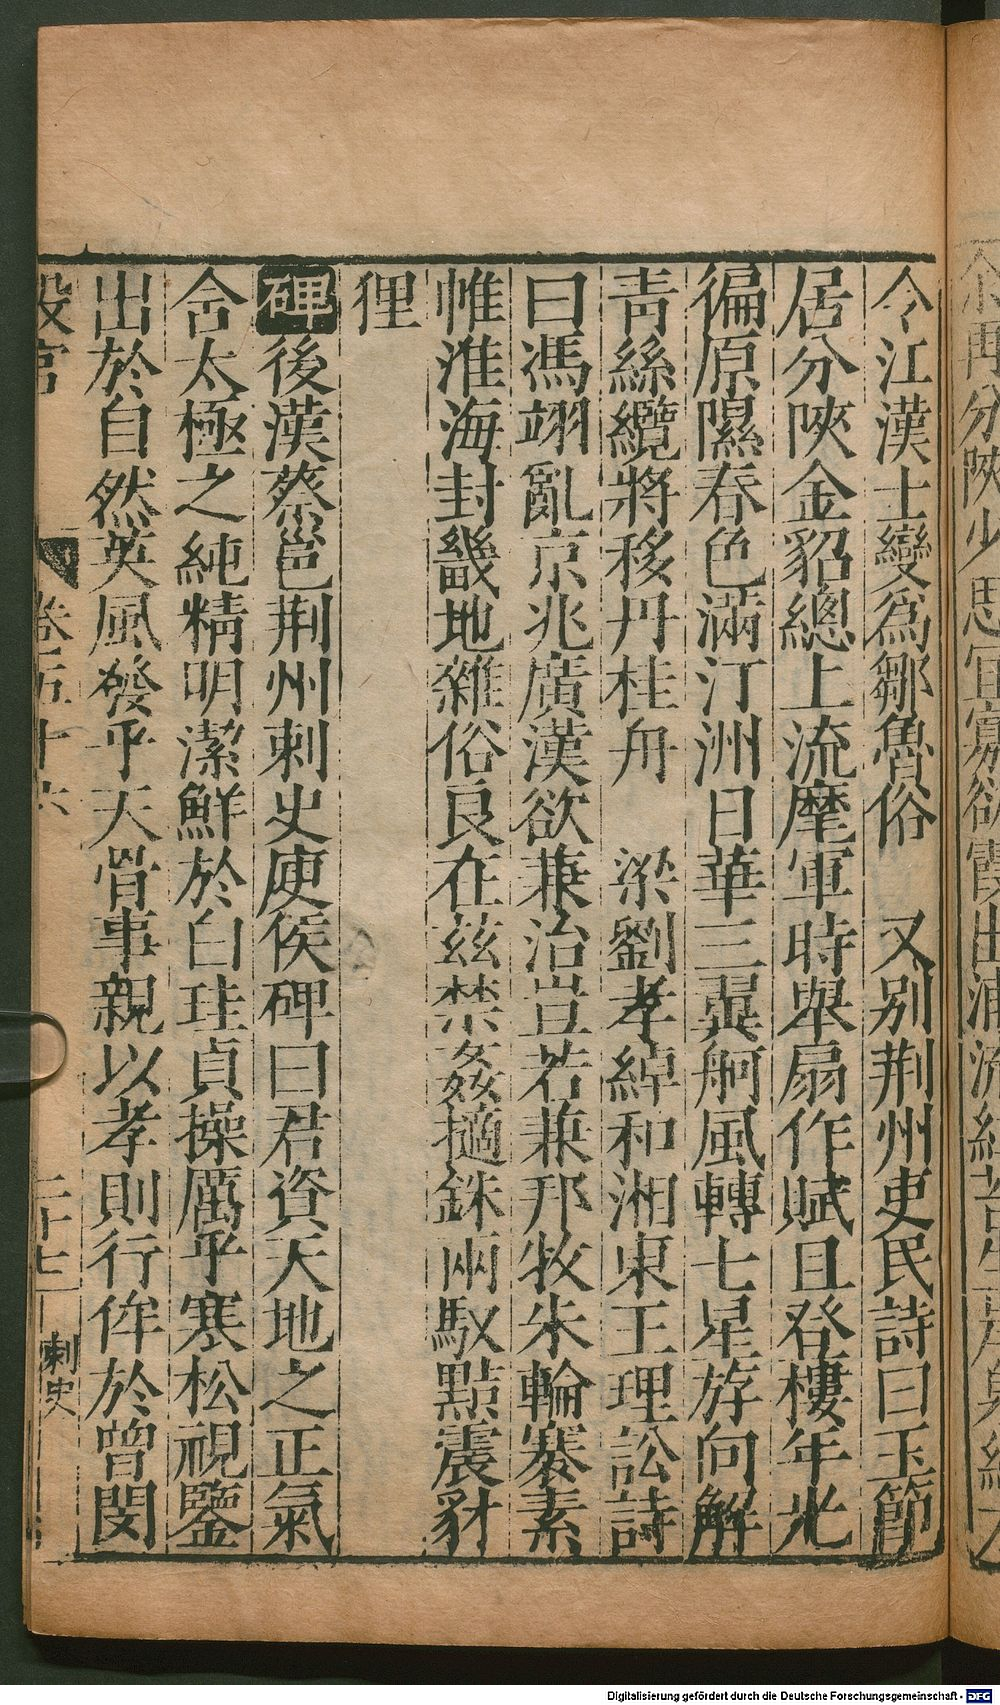 今江漢士變爲鄒魯俗　又别荆州吏民詩曰玉節
居分陝金貂總上流麾軍時舉扇作賦且登樓年光
徧原隰春色滿汀洲日華三翼舸風轉七星斿向解
青絲纜將移丹桂舟　梁劉孝綽和湘東王理訟詩
曰馮翊亂京兆廣漢欲兼治豈若兼邦牧朱輪褰素
帷淮海封畿地雜俗良在茲禁姦擿銖兩馭黠震豺
狸
碑後漢蔡邕荆州刺史庾侯碑曰君資天地之正氣
含太極之純精明潔鮮於白珪貞操厲乎寒松視鑒
出於自然英風發乎天骨事親以孝則行侔於曾閔
設官　卷五十六　二十七　刺史
Digitalisierung gefördert durch die Deutsche Forschungsgemeinschaft - DFG